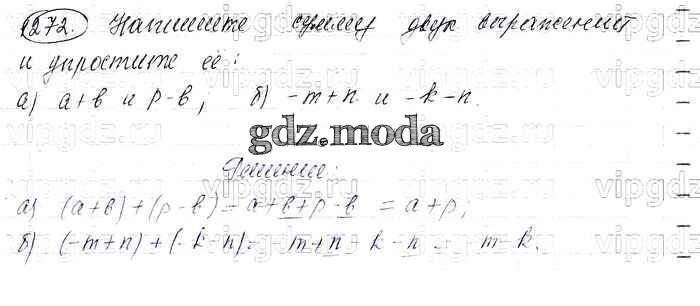 1272. Напишите сумму двух выражений
и упростите её:
а) a+в и p-в; б) -m+n и -k-n.
gdz.moda
Решение:
а) (a+в)+(p-в)=a+в+p-в = a+p;
б) (-m+n)+(-k-n)=-m+n-k-n=-m-k.